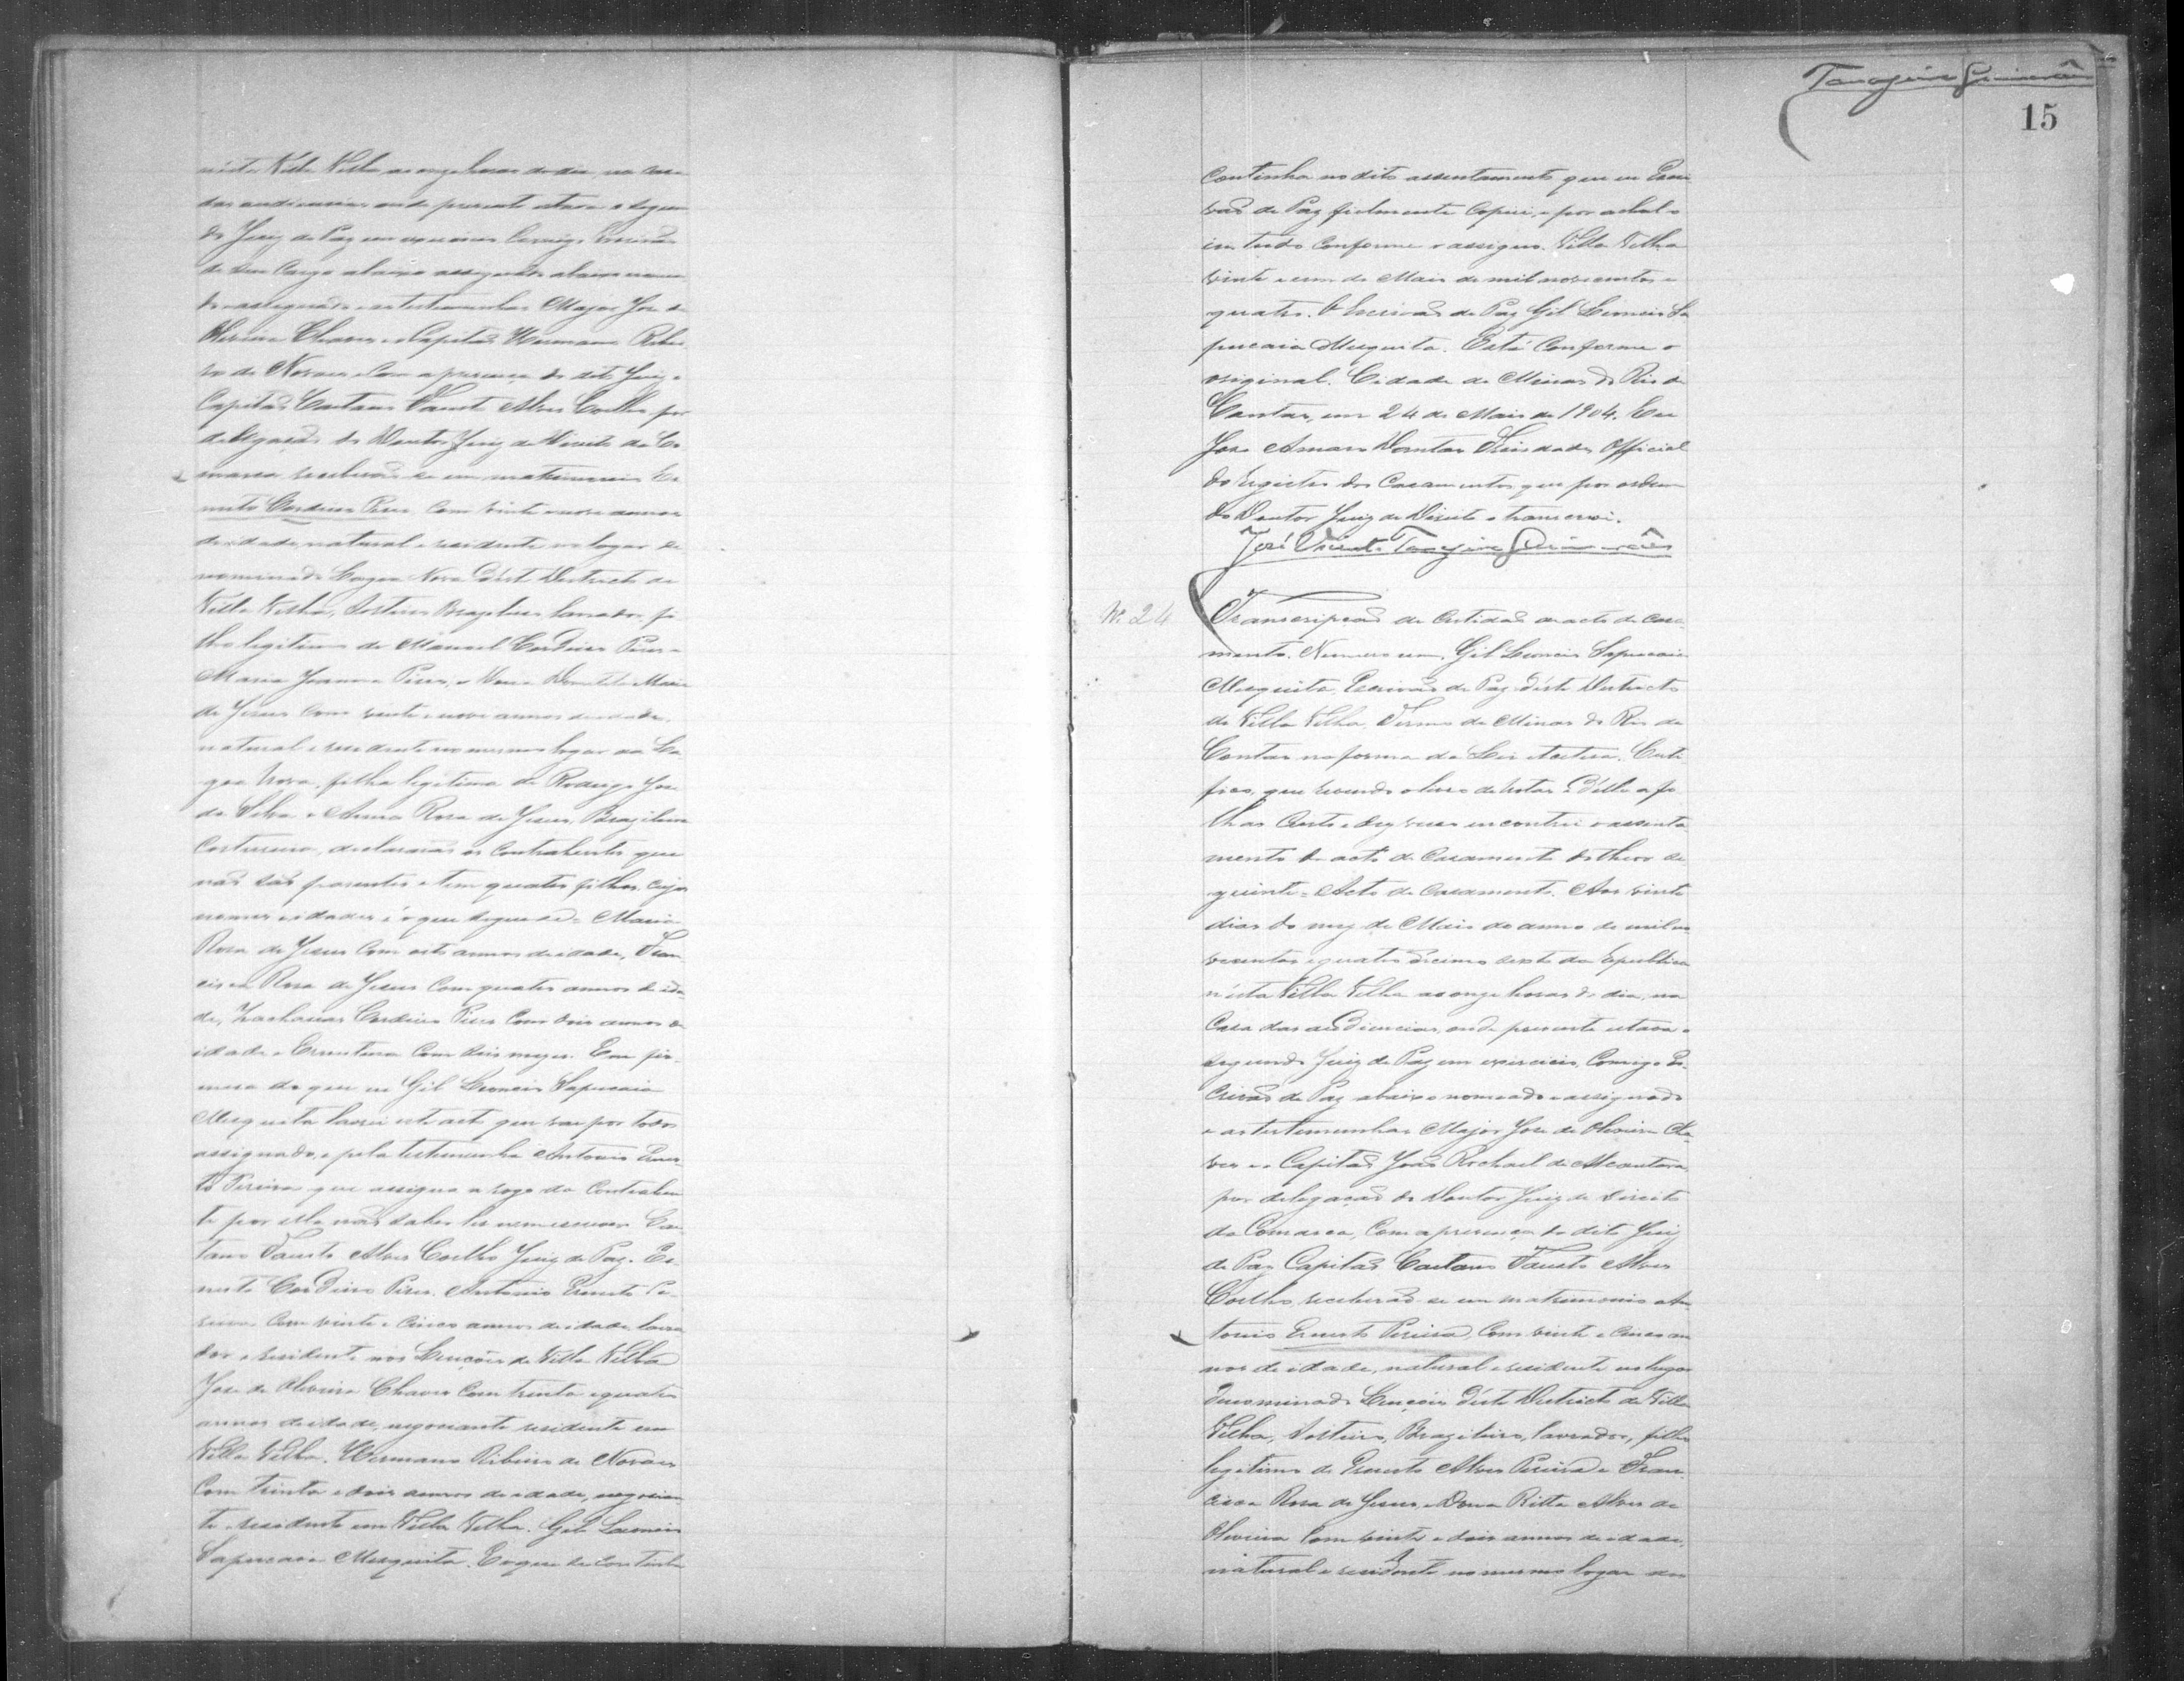 nésta Villa Velha as onze horas do dia, na casa
das audiencias onde presente estava o segun
do Juiz de Paz em exercicio Comigo Escrivão
de seu Cargo abaixo assignado abaixo nomea
do e assignado e as testemunhas Major José de
Oliveira Chaves e Capitão Hermano Ribei
ro de Novaes e Com a presença do dito Juiz o
Capitão Caetano Fausto Alves Coelho por
delegação do Doutor Juiz de Direito da Co
marca receberão se em matrimonio Er
nesto Cordeiro Pires Com vinte e nove annos
de idade, natural e residente no logar de
nominado Lagoa Nova d'est Destricto de
Villa Velha, Solteiro Brazileiro lavrador, fi
lho legitimo de Manoel Cordeiro Pires e
Maria Joanna Pires, e Dona Maria
de Jesus Com vinte e nove annos de idade,
natural e residente no mesmo logar da La
goa Nova, filha legitima de Rodrigo José
da Silva e Anna Rosa de Jesus, Brazileira
Costureira, declararão os Contrahentes que
não são parentes e tem quatro filhos, cujos
nomes e idades é o que segue se = Maria
Rosa de Jesus Com oito annos de idade, Fran
cisca Rosa de Jesus Com quatro annos de ida
de, Zacharias Cordeiro Pires Com dois annos de
idade e Ernestina Com dois mezes. Em fir
meza do que eu Gil Leoncio Sapucaia
Mesquita lavrei este acto que vae por todos
assignado, e pela testemunha Antonio Ernes
to Pereira que assigna a rogo da Contrahen
te por ella não saber ler nem escrever. Cae
tano Fausto Alves Coelho Juiz de Paz. Er
nesto Cordeiro Pires. Antonio Ernesto Pe
reira Com vinte e cinco annos de idade lavra
dor e residente nos Lençóes de Villa Velha
José de Oliveira Chaves Com trinta e quatro
annos de idade, negociante residente em
Villa Velha. Hermano Ribeiro de Novaes
Com trinta e dois annos de idade, negocian
te residente em Villa Velha. Gil Leoncio
Sapucaia Mesquita. E o que se continha
Tanajura Guimarães
15
Continha no dito assentamento que eu Escri
vão de Paz fielmente Copiei, e por achal o
em tudo Conforme o assigno. Villa Velha
vinte e um de Maio de mil novecentos e
quatro. O Escrivão de Paz Gil Leoncio Sa
pucaia Mesquita. Está Conforme o
original. Cidade de Minas do Rio de
Contas, em 24 de Maio de 1904. Eu
José Amaro Dantas Trindade, Official
do registro dos Casamentos que por ordem
do Doutor Juiz de Direito o transcrevi.
José Vicente Tanajura Guimarães
Nº 24
Transcripção da Certidão do acto de casa
mento. Numero um. Gil Leoncio Sapucaia
Mesquita, Escrivão de Paz d'éste Destricto
de Villa Velha, Termo de Minas do Rio de
Contas na forma da Lei etcetra. Certi
fico que revendo o livro de Notas d'élle a fo
lhas Cento e dez verso encontrei o assenta
mento do acto de Casamento do theor se
guinte = Acto de Casamento. Aos vinte
dias do mez de Maio do anno de mil no
vecentos e quatro decimo sexto da Republica
n'ésta Villa Velha as onze horas do dia, na
Casa das audiencias, onde presente estava o
segundo Juiz de Paz em exercicio, Comigo Es
crivão de Paz abaixo nomeado e assignado
e as testemunhas Major José de Oliveira Cha
ves e o Capitão João Rochael de Alcantara
por delegação do Doutor Juiz de Direito
da Comarca, Com a presença do dito Juiz
de Paz Capitão Caetano Fausto Alves
Coelho, receberão se em matrimonio An
tonio Ernesto Pereira, Com vinte e cinco an
nos de idade, natural e residente no lugar
denominado Lençóis d'éste Destricto de Villa
Velha, Solteiro, Brazileiro, lavrador, filho
legitimo de Ernesto Alves Pereira e Fran
cisca Rosa de Jesus, e Dona Ritta Alves de
Oliveira Com vinte e dois annos de idade,
natural e residente no mesmo logar dos